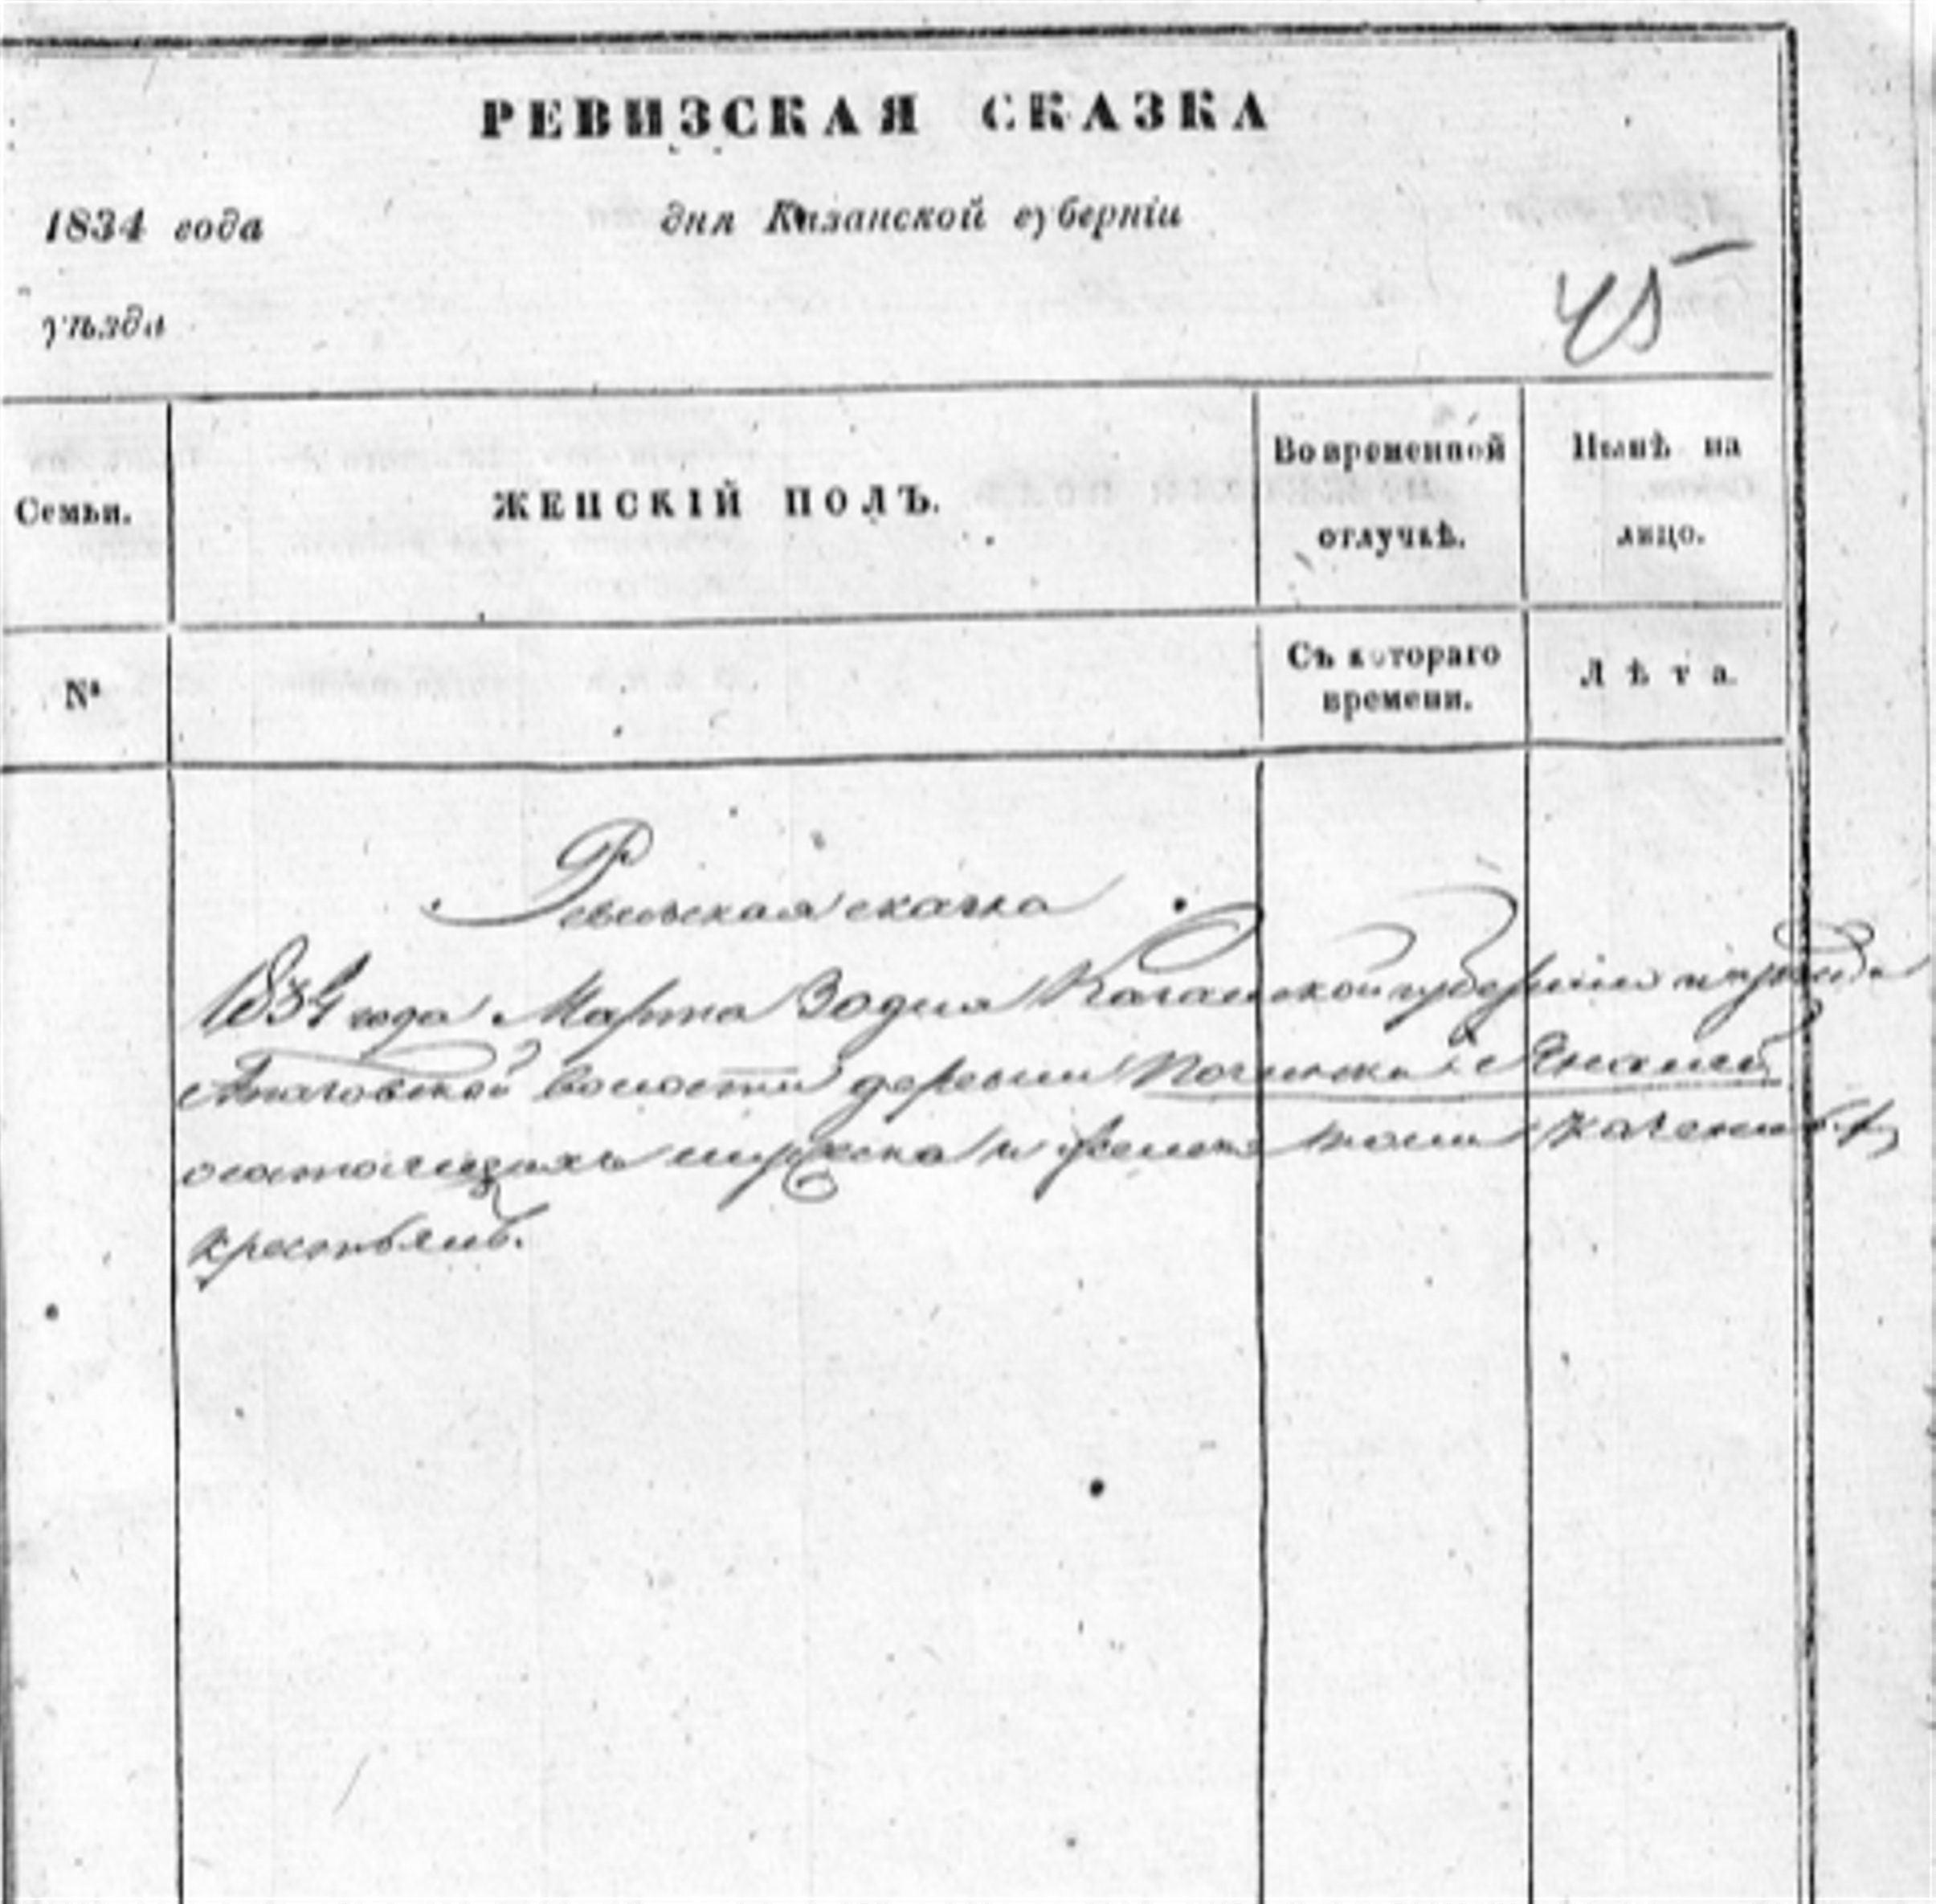 РЕВИЗСКАЯ СКАЗКА
1834 года дня Казанской губерніи
уѣзда
45
Семьи. ЖЕНСКІЙ ПОЛЪ. Во временной отлучкѣ. Нынѣ на лицо.
№ Съ котораго времени. Лѣта.
Ревиская сказка
1834 года Марта 30 дня Казанской губерніи и уѣзда
волости деревни Починка
состоящихъ мужеска и женска пола
крестьянъ.